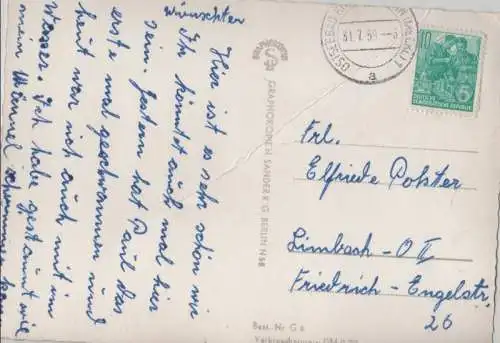 Hier ist es sehr schön wir
wünschten
Ihr könntet auch mal hier
sein. Gestern hat Paul das
erste mal geschwommen und
heut war ich auch mit im
Wasser. Ich habe gestaunt wie
mein Männel schwimmen kann
GRAPHOKOPIE H. SANDER KG. BERLIN N 58
OSTSEEBAD
31.7.59
a
10
DEUTSCHE
DEMOKRATISCHE REPUBLIK
Frl.
Elfriede Pohter
Limbach-O II
Friedrich-Engelstr.
26
Best. Nr. G 6